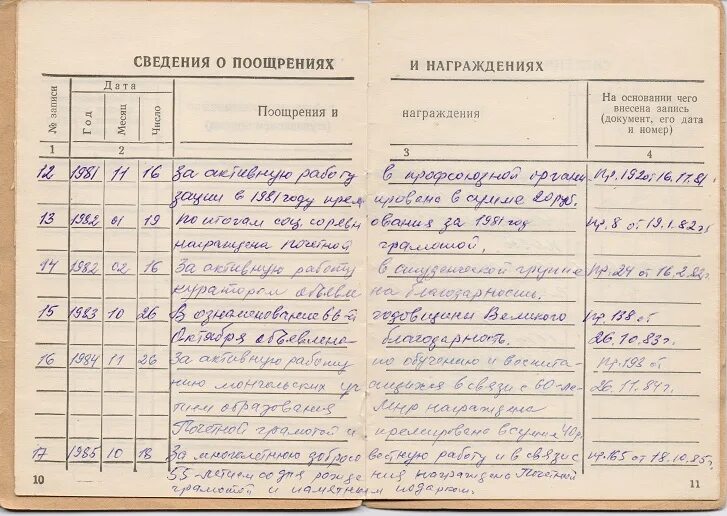 СВЕДЕНИЯ О ПООЩРЕНИЯХ И НАГРАЖДЕНИЯХ
№ записи Дата Поощрения и награждения На основании чего внесена запись (документ, его дата и номер)
Год Месяц Число
1 2 3 4
12 1981 11 16 За активную работу в профсоюзной органи Пр. 192 от 16.11.81
зации в 1981 году преми ирована в сумме 20 руб.
13 1982 01 19 По итогам соц. соревн ования за 1981 год Пр. 8 от 19.1.82г.
награждена Почетной грамотой.
14 1982 02 16 За активную работу в студенческой группе Пр. 24 от 16.2.82г.
куратором объявле на благодарность.
15 1983 10 26 В ознаменование 66-й годовщины Великого Пр 138 от
Октября объявлена благодарность. 26.10.83г.
16 1984 11 26 За активную работу по обучению и воспита Пр. 193 от
нию монгольских уч ащихся в связи с 60-ле 26.11.84г.
тием образования МНР награждена
Почетной грамотой и премирована в сумме 40р.
17 1985 10 18 За многолетнюю добросо вестную работу и в связи с пр. 165 от 18.10.85г.
55-летием со дня рожде ния награждена Почетной
грамотой и памятным подарком.
10 11